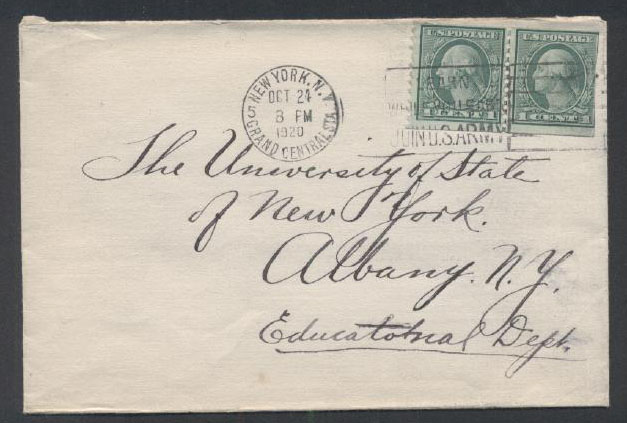 U.S. POSTAGE
U.S. POSTAGE
1 CENT 1
1 CENT 1
NEW YORK, N.Y.
OCT 24
8 PM
1920
GRAND CENTRAL STA.
EARN
JOIN U.S. ARMY
The University of State
of New York.
Albany. N.Y.
Educatotnal Dept.